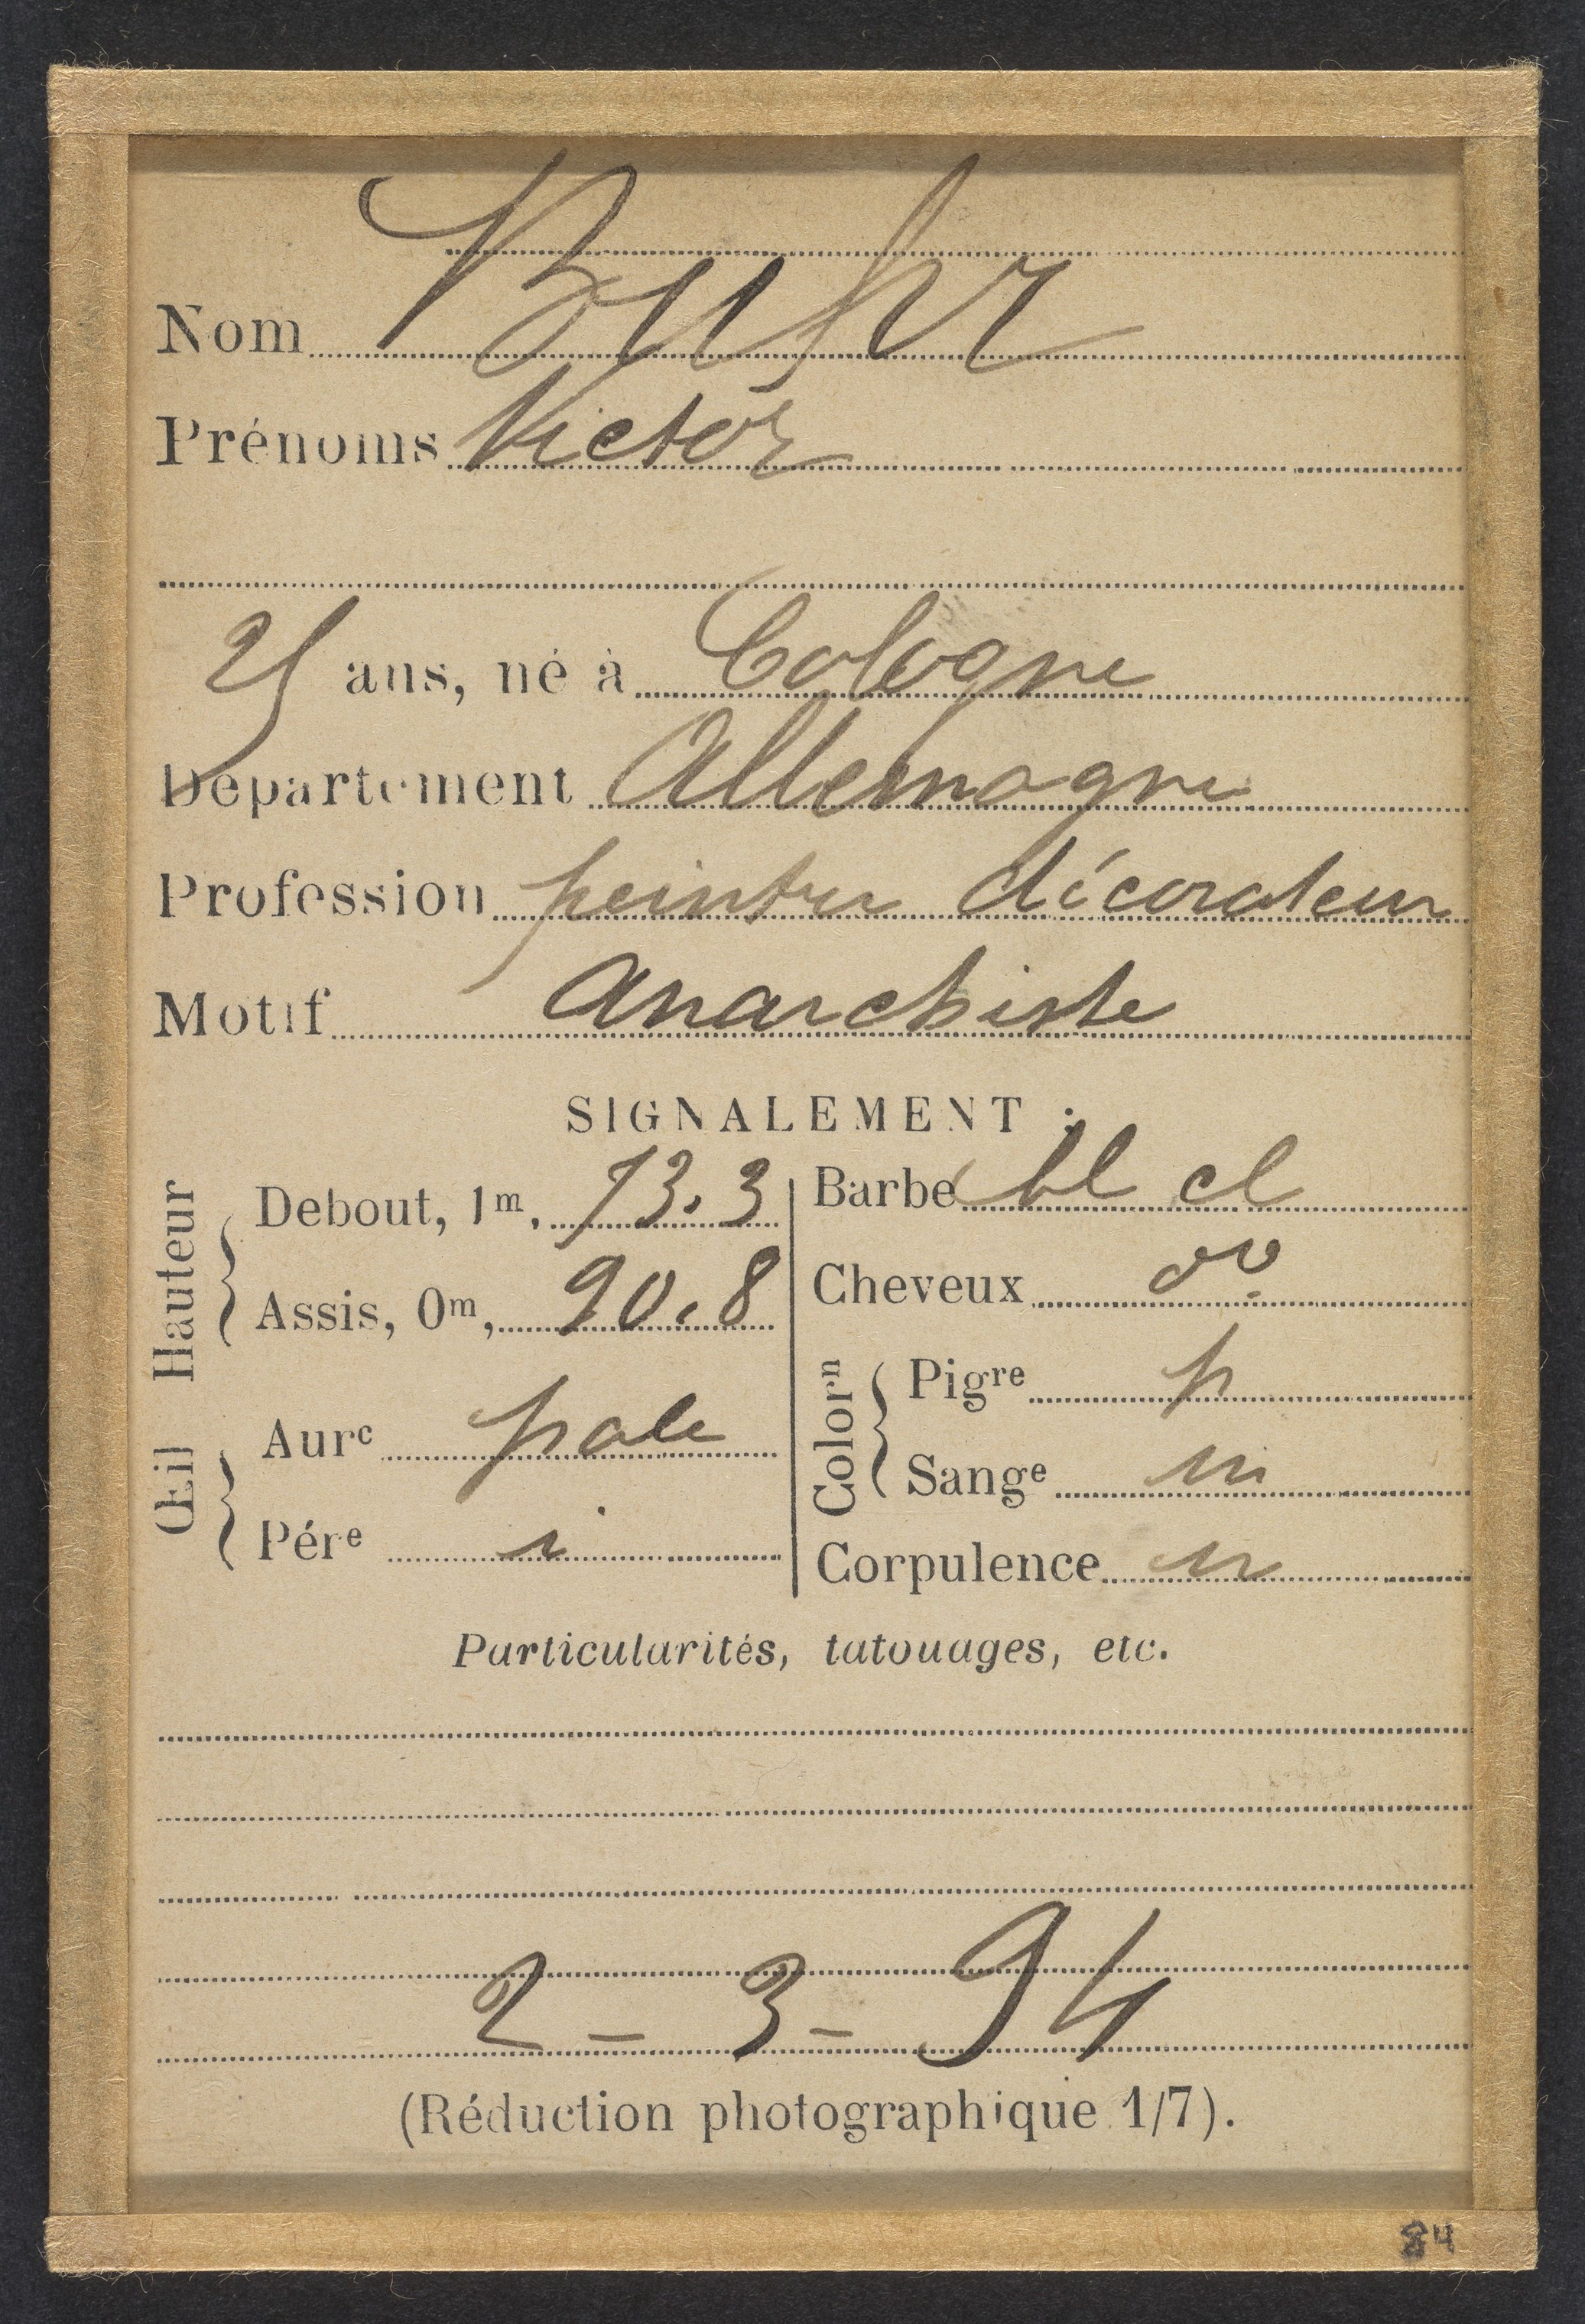 Nom Buhr
Prénoms Victor
25 ans, né à Cologne
Département Allemagne
Profession peintre décorateur
Motif Anarchiste
SIGNALEMENT :
Hauteur
Debout, 1m, 73.3
Assis, 0m, 90.8
Œil
Aurᶜ pale
Pérᵉ i
Barbe bl cl
Cheveux dº
Colorⁿ
Pigʳᵉ p
Sangᵉ m
Corpulence m
Particularités, tatouages, etc.
2 - 3 - 94
(Réduction photographique 1/7).
84